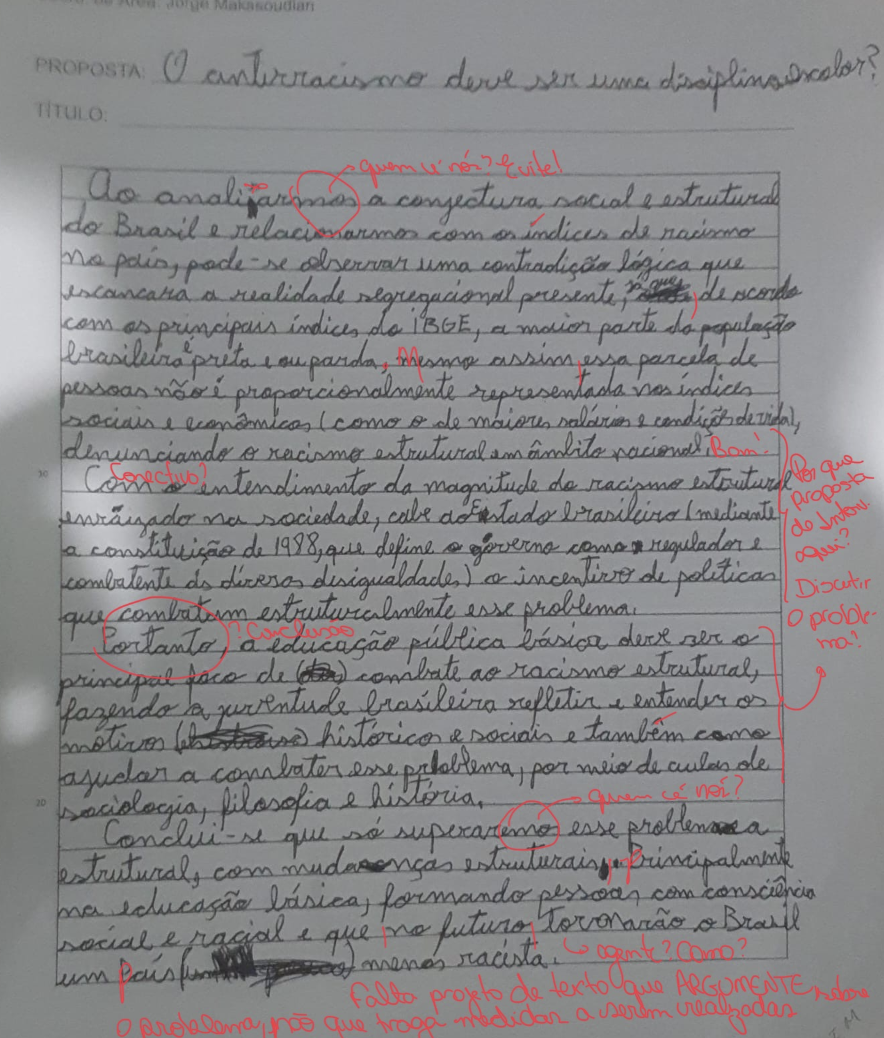 Jorge Makasoudian
PROPOSTA: O antirracismo deve ser uma disciplina escolar?
TÍTULO:
quem é nós? Evite!
Ao analisarmos a conjectura social e estrutural
do Brasil e relacionarmos com os índices de racismo
no país, pode-se observar uma contradição lógica que
escancara a realidade segregacional presente, de acordo
com os principais índices do IBGE, a maior parte da população
brasileira é preta e ou parda, Mesmo assim, essa parcela de
pessoas não é proporcionalmente representada nos índices
sociais e econômicos (como o de maiores salários e condições de vida),
denunciando o racismo estrutural em âmbito nacional. Bom!
Conectivo?
30 Com o entendimento da magnitude do racismo estrutural
enraizado na sociedade, cabe ao Estado brasileiro (mediante
a constituição de 1988, que define o governo como regulador e
combatente das diversas desigualdades) o incentivo de políticas
que combatam estruturalmente esse problema.
Por que
proposta
de Interv.
aqui?
Discutir
o proble-
ma?
Portanto, a educação pública básica deve ser o
? Conclusão
principal foco de combate ao racismo estrutural,
fazendo a juventude brasileira refletir e entender os
motivos históricos e sociais e também como
ajudar a combater esse problema, por meio de aulas de
20 sociologia, filosofia e história.
quem é nós?
Conclui-se que só superaremos esse problema
estrutural, com mudanças estruturais, Principalmente
na educação básica, formando pessoas com consciência
social e racial e que no futuro, tornarão o Brasil
um país menos racista.
agente? Como?
Falta projeto de texto que ARGUMENTE sobre
o problema, não que traga medidas a serem realizadas